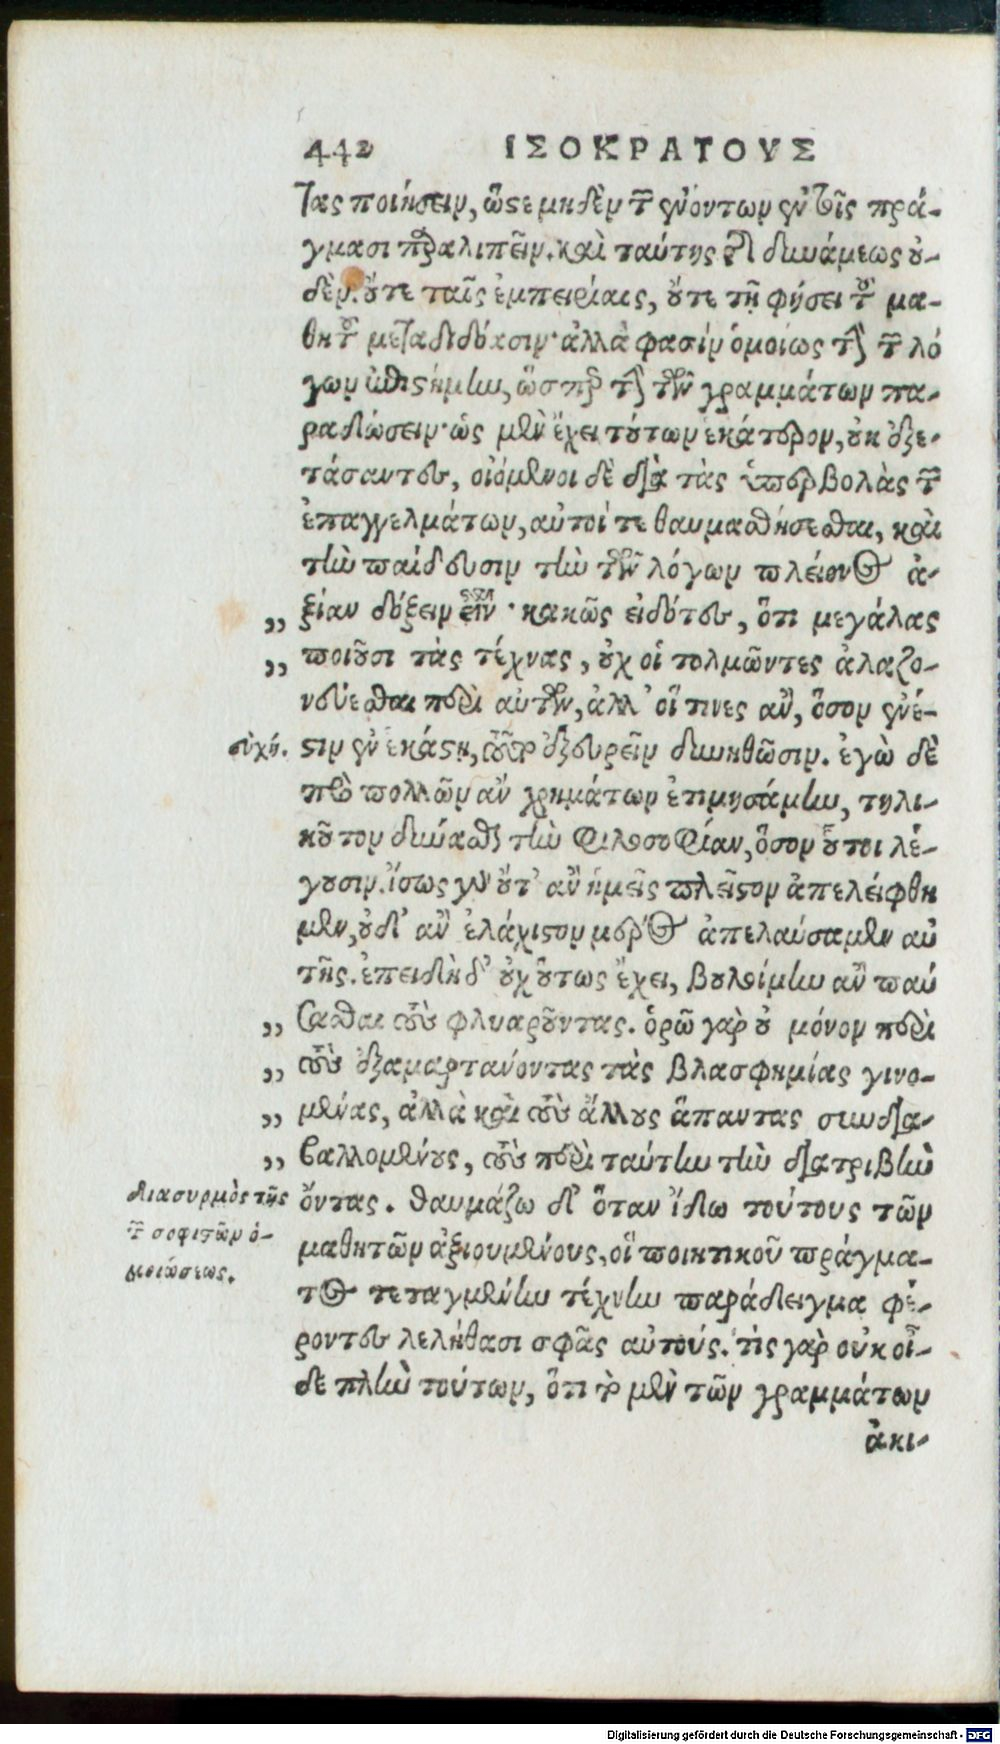 442 ΙΣΟΚΡΑΤΟΥΣ
τας ποιήσειν, ὥστε μηδὲν τῶν ἐνόντων ἐν τοῖς πρά-
γμασι παραλιπεῖν. καὶ ταύτης τῆς δυνάμεως οὐ-
δὲν. οὔτε ταῖς ἐμπειρίαις, οὔτε τῇ φήσει τοῦ μα-
θητοῦ μεταδιδόασιν· ἀλλὰ φασὶν ὁμοίως τὴν τῶν λό
γων ἐπιστήμην, ὥσπερ τὴν τῶν γραμμάτων πα-
ραδώσειν· ὡς μὲν ἔχει τούτων ἑκάτερον, οὐκ ἐξε-
τάσαντες, οἰόμενοι δὲ διὰ τὰς ὑπερβολὰς τῶν
ἐπαγγελμάτων, αὐτοί τε θαυμασθήσεσθαι, καὶ
τὴν παίδευσιν τὴν τῶν λόγων πλείονος ἀ-
„ ξίαν δόξειν εἶναι· κακῶς εἰδότες, ὅτι μεγάλας
„ ποιοῦσι τὰς τέχνας, οὐχ οἱ τολμῶντες ἀλαζο-
νεύεσθαι περὶ αὐτῶν, ἀλλ' οἵ τινες ἂν, ὅσον ἐνέ-
εὐχή. στιν ἐν ἑκάστῃ, τοῦτο ἐξευρεῖν δυνηθῶσιν. ἐγὼ δὲ
πρὸ πολλῶν ἂν χρημάτων ἐτιμησάμην, τηλι-
κοῦτον δύνασθαι τὴν φιλοσοφίαν, ὅσον οὗτοι λέ-
γουσιν. ἴσως γὰρ οὔτ' ἂν ἡμεῖς πλεῖστον ἀπελείφθη
μεν, οὐδ' ἂν ἐλάχιστον μέρος ἀπελαύσαμεν αὐ
τῆς. ἐπειδὴ δ' οὐχ οὕτως ἔχει, βουλοίμην ἂν παύ
„ σασθαι τοὺς φλυαροῦντας. ὁρῶ γὰρ οὐ μόνον περὶ
„ τοὺς ἐξαμαρτάνοντας τὰς βλασφημίας γινο-
„ μένας, ἀλλὰ καὶ τοὺς ἄλλους ἅπαντας συνδια-
„ βαλλομένους, τοὺς περὶ ταύτην τὴν διατριβὴν
διασυρμὸς τῆς ὄντας. θαυμάζω δ' ὅταν ἴδω τούτους τῶν
τῶν σοφιστῶν ὁ- μαθητῶν ἀξιουμένους, οἳ ποιητικοῦ πράγμα-
μοιώσεως. τος τεταγμένην τέχνην παράδειγμα φέ-
ροντες λελήθασι σφᾶς αὐτούς. τίς γὰρ οὐκ οἶ-
δε πλὴν τούτων, ὅτι τὸ μὲν τῶν γραμμάτων
ἀκι-
Digitalisierung gefördert durch die Deutsche Forschungsgemeinschaft - DFG